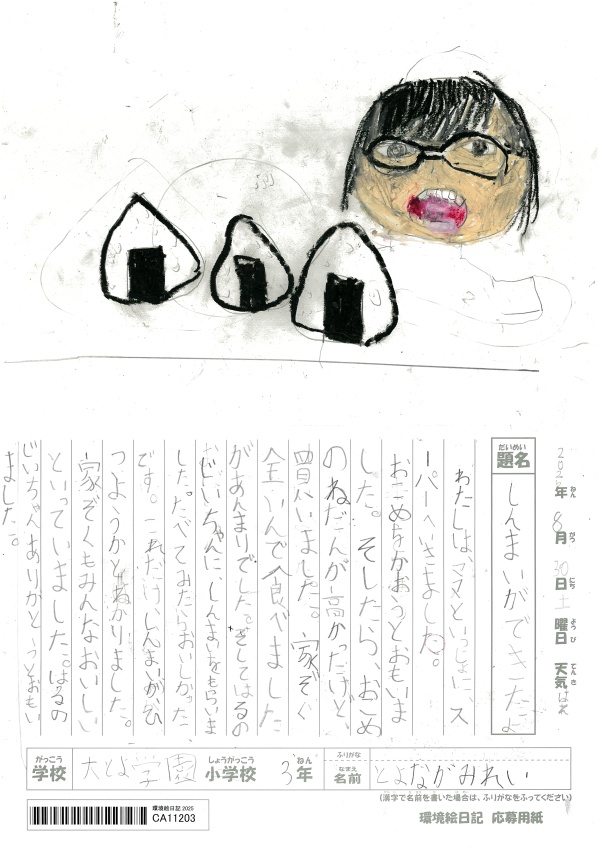 2025年 8月 30日 土曜日 天気はれ
ねん がつ にち ようび てんき
だいめい
題名
しんまいができたよ
わたしは、ママといっしょに、ス
ーパーへいきました。
おこめをかおうとおもいま
した。そしたら、おこめ
のねだんが高かったけど、
買いました。家ぞく
全いんで食べました
があんまりでした。そしてはるの
じいちゃんに、しんまいをもらいま
した。たべてみたらおいしかった
です。これだけ、しんまいが、ひ
つようかとわかりました。
家ぞくもみんなおいしい
といっていました。はるの
じいちゃんありがとうとおもい
ました。
がっこう
学校
大とよ学園
しょうがっこう
小学校
3年
ねん
ふりがな
なまえ
名前
とよながみれい
(漢字で名前を書いた場合は、ふりがなをふってください)
環境絵日記 2025
CA11203
環境絵日記 応募用紙